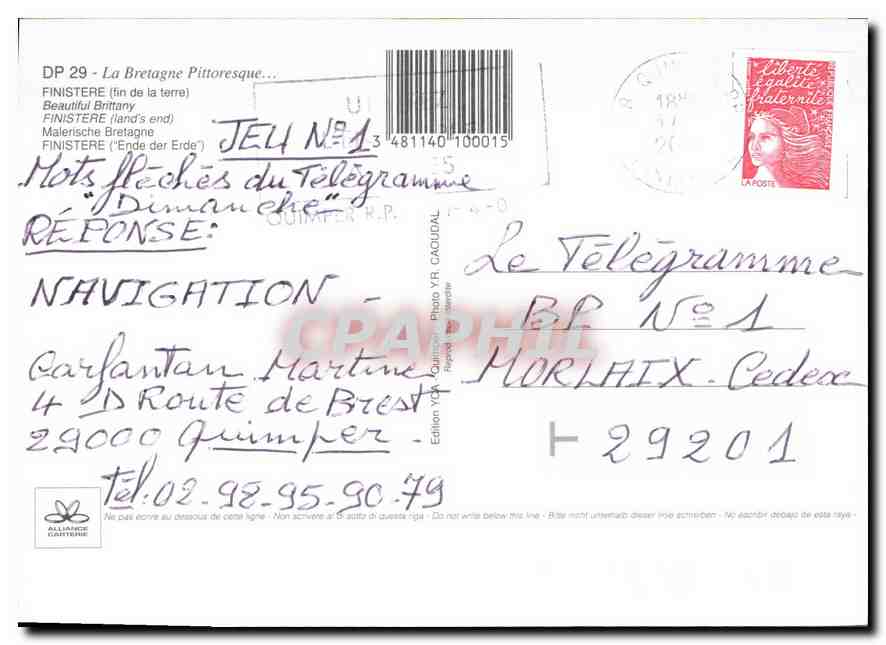 DP 29 - La Bretagne Pittoresque...
FINISTERE (fin de la terre)
Beautiful Brittany
FINISTERE (land's end)
Malerische Bretagne
FINISTERE ("Ende der Erde")
3 481140 100015
JEU Nº1
Mots fléchés du Télégramme
"Dimanche"
RÉPONSE:
NAVIGATION -
Garfantan Martine
4 D Route de Brest
29000 Quimper -
Tél: 02-98-95-90-79
QUIMPER R.P.
liberté
égalité
fraternité
RÉPUBLIQUE FRANÇAISE
LA POSTE
Edition YCA - Quimper - Photo Y.R. CAOUDAL
Reproduction interdite
Le Télégramme
BP. Nº1
MORLAIX. Cedex
29201
CPAPHIL
ALLIANCE
CARTERIE
Ne pas écrire au dessous de cette ligne - Non scrivere al di sotto di questa riga - Do not write below this line - Bitte nicht unterhalb dieser linie schreiben - No escribir debajo de esta raya -